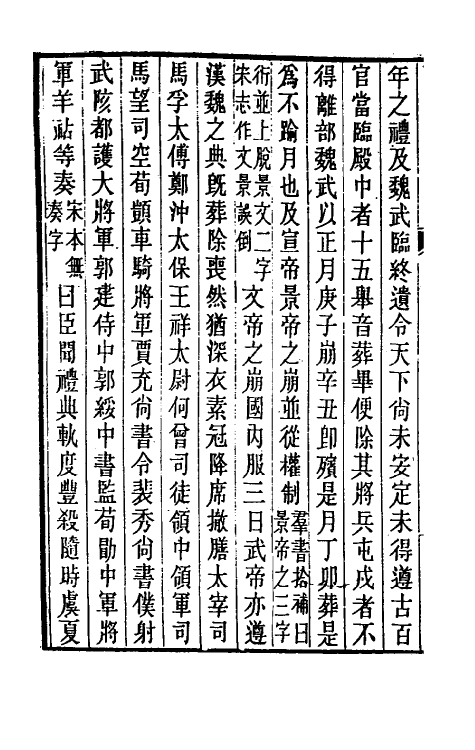 年之禮及魏武臨終遺令天下尙未安定未得遵古百
官當臨殿中者十五舉音葬畢便除其將兵屯戍者不
得離部魏武以正月庚子崩辛丑卽殯是月丁卯葬是
爲不踰月也及宣帝景帝之崩並從權制羣書拾補曰景帝之三字
衍並上脫景文二字宋志作文景誤倒文帝之崩國內服三日武帝亦遵
漢魏之典旣葬除喪然猶深衣素冠降席撤膳太宰司
馬孚太傅鄭沖太保王祥太尉何曾司徒領中領軍司
馬望司空荀顗車騎將軍賈充尙書令裴秀尙書僕射
武陔都護大將軍郭建侍中郭綏中書監荀勖中軍將
軍羊祜等奏宋本無奏字曰臣聞禮典軌度豐殺隨時虞夏